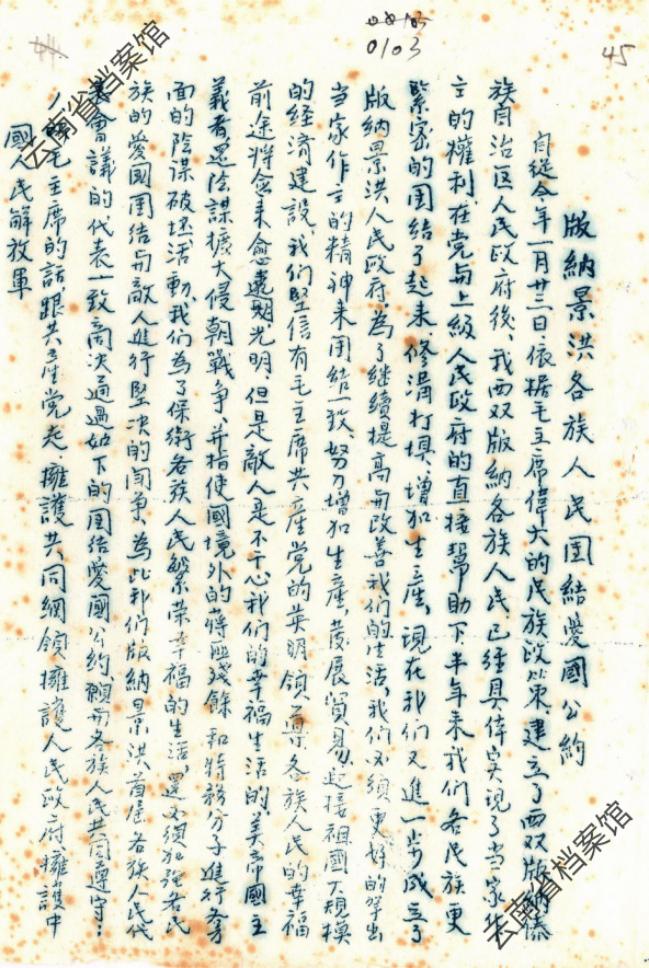 0103
45
版納景洪各族人民团結愛國公約
自從今年一月廿三日、依据毛主席偉大的民族政策、建立了西双版納傣
族自治区人民政府後、我西双版納各族人民已經具体实現了当家作
主的權利、在党与上級人民政府的直接幫助下半年来我們各民族更
緊密的团結了起来、修溝打垻、增加生産、現在我們又進一步成立了
版納景洪人民政府、為了継續提高与改善我們的生活、我們必須更好的拿出
当家作主的精神来团結一致、努力增加生産、發展貿易、迎接祖國大規模
的経済建設、我們堅信有毛主席共産党的英明領導各族人民的幸福
前途将愈来愈光明、但是敵人是不干心我們的幸福生活的、美帝國主
義者還陰謀擴大侵朝戰争、并指使國境外的蔣匪殘餘和特務分子進行各方
面的陰謀破坏活動、我們為了保衛各族人民繁荣幸福的生活、還必須加強各民
族的愛國团結与敵人進行堅决的鬥争、為此我們版納景洪首届各族人民代
表會議的代表一致商决通過如下的团結愛國公約、願与各族人民共同遵守：
毛主席的話、跟共産党走、擁護共同綱領、擁護人民政府、擁護中
國人民解放軍
云南省档案馆
云南省档案馆